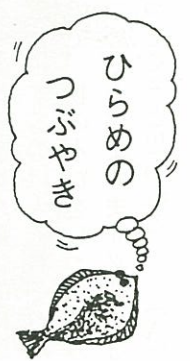 ひらめの
つぶやき